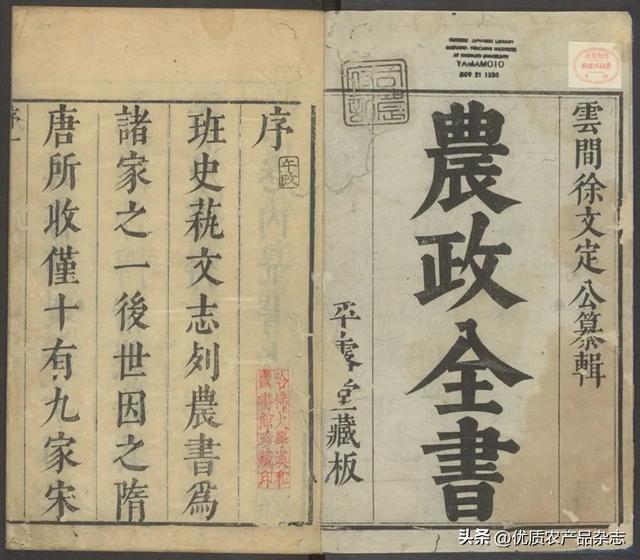 CHINESE-JAPANESE LIBRARY
HARVARD-YENCHING INSTITUTE
AT HARVARD UNIVERSITY
YAMAMOTO
NOV 21 1930
雲間徐文定公纂輯
農政全書
平露堂藏板
序
哈佛大學漢和
圖書館珍藏印
班史蓺文志列農書為
諸家之一後世因之隋
唐所收僅十有九家宋
序一
头条 @优质农产品杂志